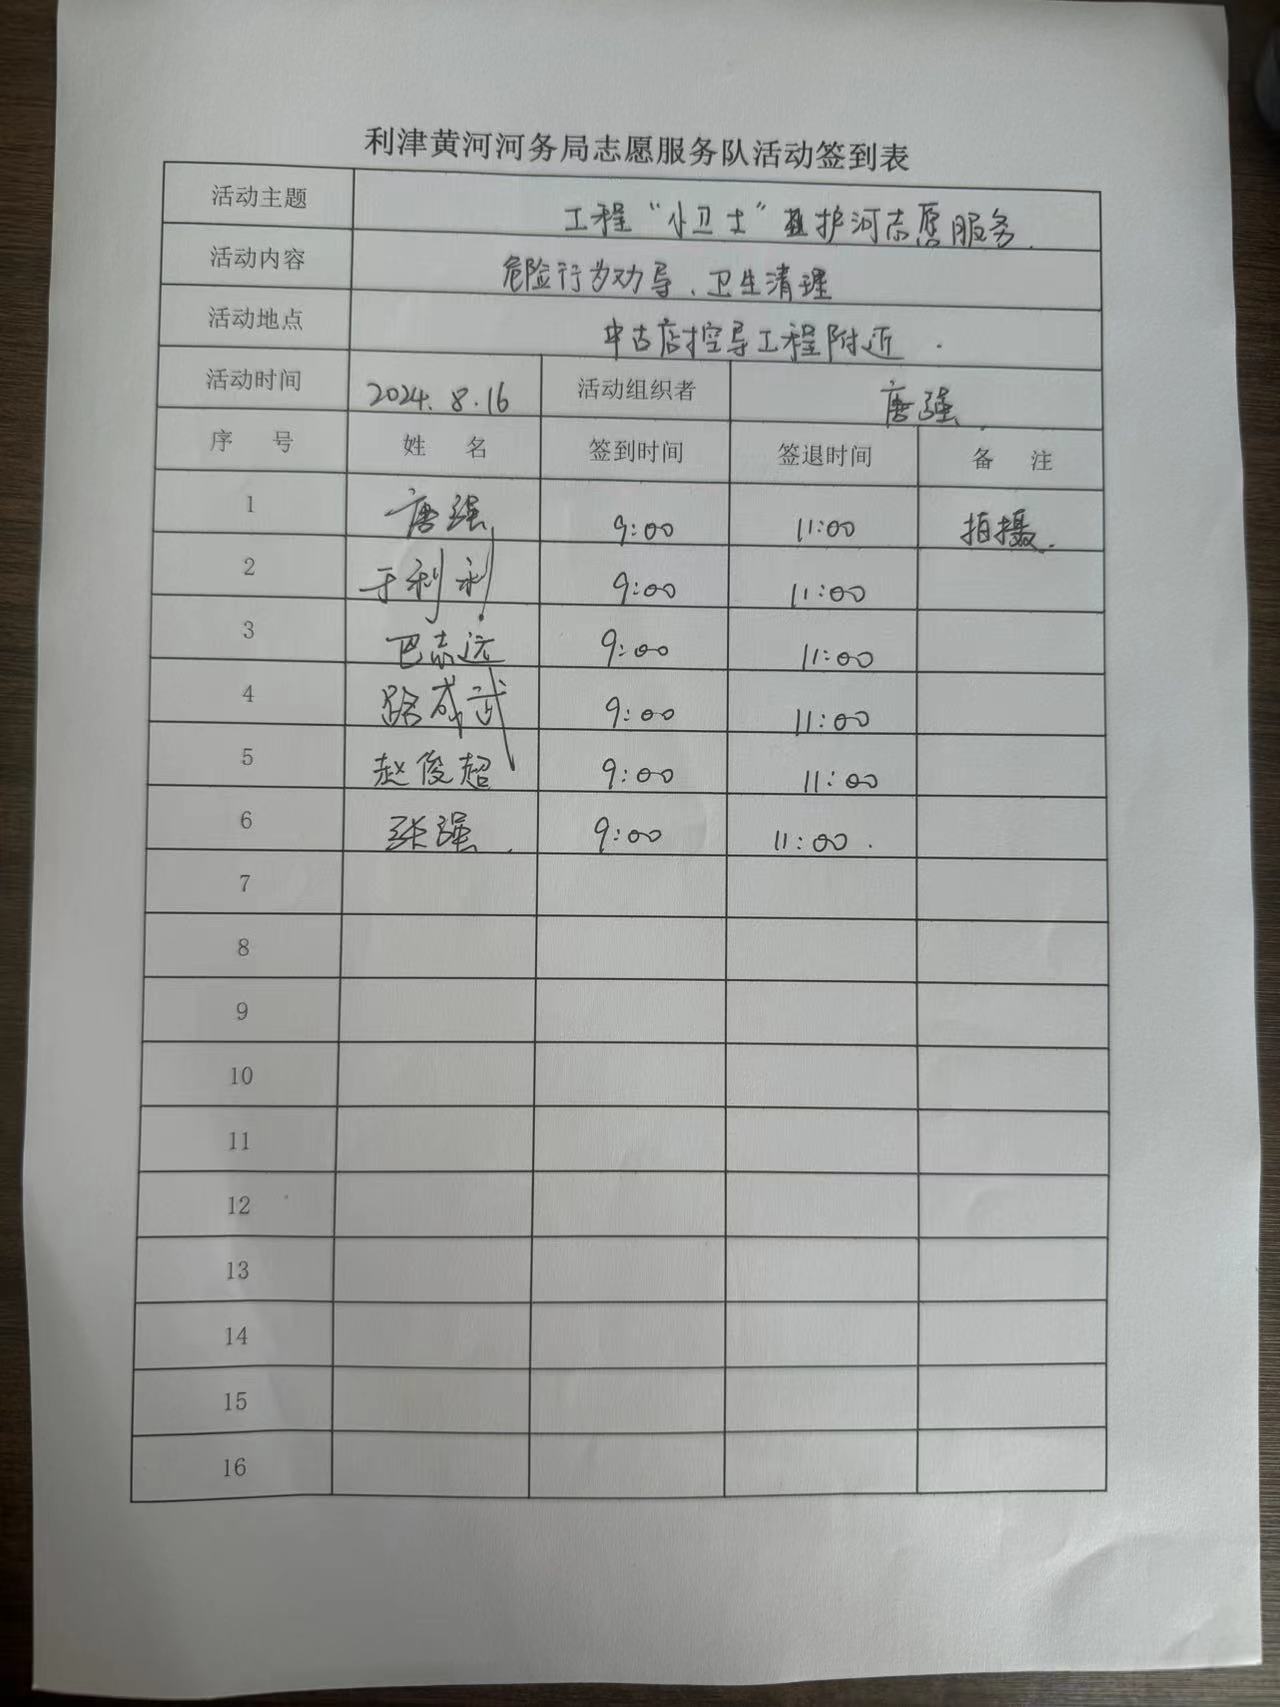 利津黄河河务局志愿服务队活动签到表
活动主题 工程“小卫士”护河志愿服务.
活动内容 危险行为劝导、卫生清理
活动地点 中古店控导工程附近.
活动时间 2024.8.16 活动组织者 唐强.
序号 姓名 签到时间 签退时间 备注
1 唐强 9:00 11:00 拍摄.
2 于利利 9:00 11:00
3 巴志远 9:00 11:00
4 路成武 9:00 11:00
5 赵俊超 9:00 11:00
6 张强. 9:00 11:00.
7
8
9
10
11
12
13
14
15
16